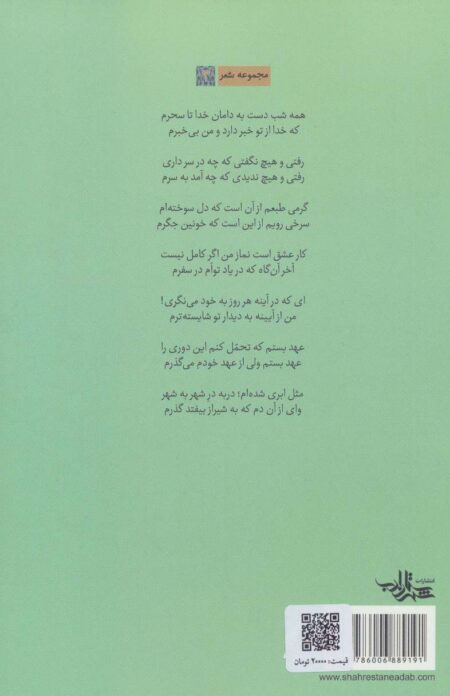 مجموعه شعر
همه شب دست به دامان خدا تا سحرم
که خدا از تو خبر دارد و من بی‌خبرم
رفتی و هیچ نگفتی که چه در سر داری
رفتی و هیچ ندیدی که چه آمد به سرم
گرمی طبعم از آن است که دل سوخته‌ام
سرخی رویم از این است که خونین جگرم
کار عشق است نماز من اگر کامل نیست
آخر آن‌گاه که در یاد توام در سفرم
ای که در آینه هر روز به خود می‌نگری!
من از آیینه به دیدار تو شایسته‌ترم
عهد بستم که تحمّل کنم این دوری را
عهد بستم ولی از عهد خودم می‌گذرم
مثل ابری شده‌ام؛ دربه در شهر به شهر
وای از آن دم که به شیراز بیفتد گذرم
انتشارات
شهرستان ادب
قیمت: ۲۰۰۰۰ تومان
786006889191
www.shahrestaneadab.com